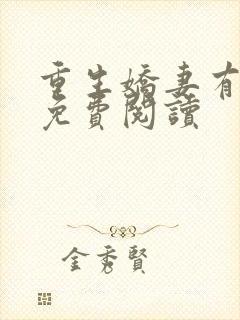 重生嬌妻有
免費閱讀
金秀賢